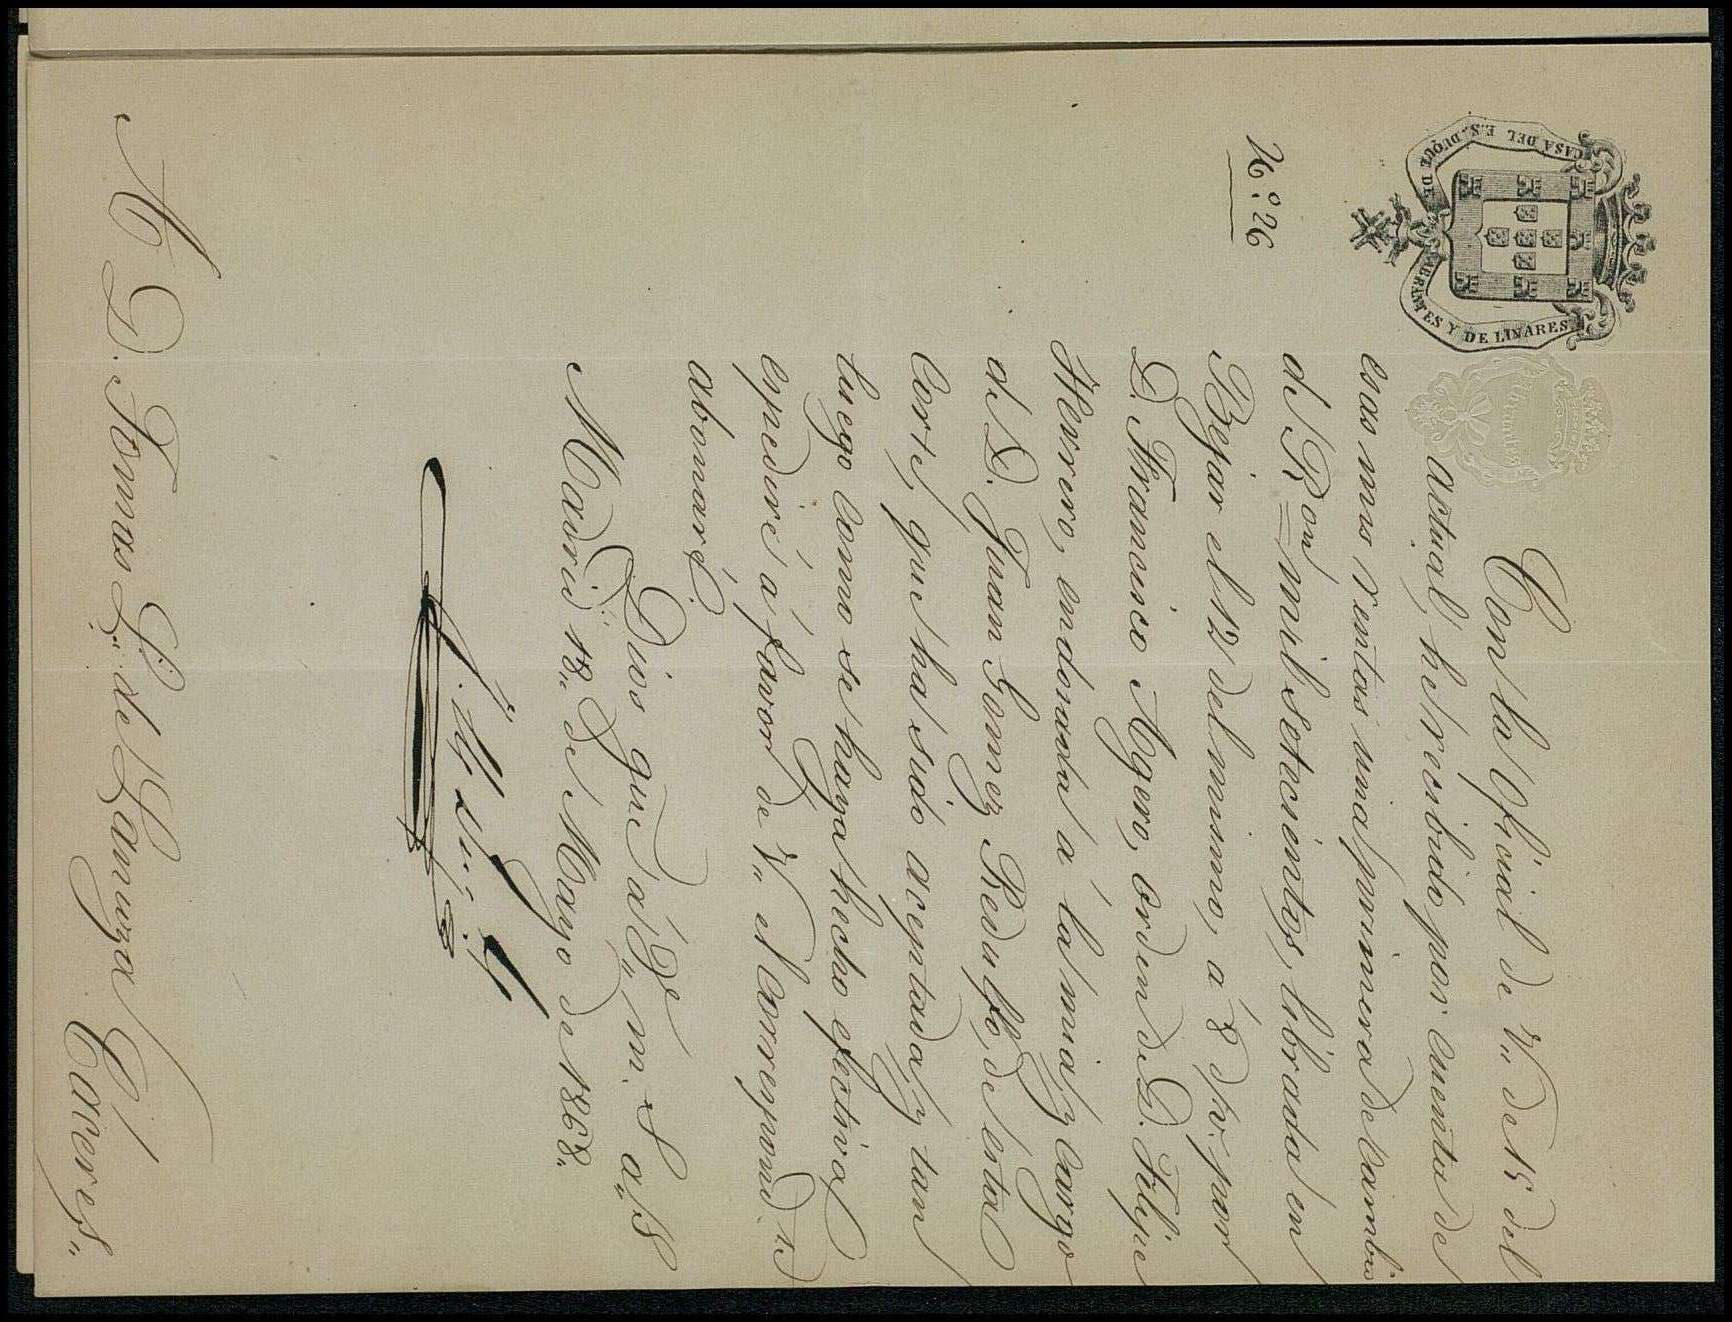 CASA DEL E.S. DUQUE DE ABRANTES Y DE LINARES
N.º 26
Con la Oficial de V. de 15 del
actual, he recibido por cuenta de
esas mis rentas una primera de cambio
de R.on mil setecientos, librada en
Bejar el 12 del mismo, a 8 d/v. por
D. Francisco Agero, orden de D. Felipe
Herrero, endonada á la mia y cargo
de D. Juan Gomez Redulfo, de esta
Corte, que ha sido aceptada y tan
luego como se haya hecho efectiva
espediré á favor de V. el correspond.te
abonaré.
Dios gue á V. m. s a.s
Madrid 18 de Mayo de 1868.
A D. Tomas L. de Lanuza Caceres.